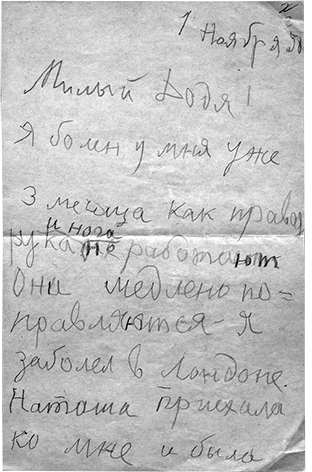 1 Ноября 50
Милый Додя!
Я болен у мня уже
3 месяца как правая
и нога
рука не работают
Они медлено по=
правляются - Я
заболел в Лондоне.
Наташа приехала
ко мне и была